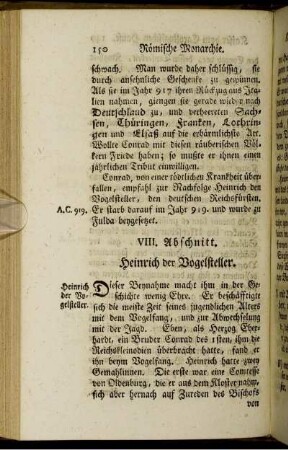 150 Römische Monarchie.
schwach. Man wurde daher schlüssig, sie
durch ansehnliche Geschenke zu gewinnen.
Als sie im Jahr 917 ihren Rückzug aus Ita-
lien nahmen, giengen sie gerade wieder nach
Deutschland zu, und verheereten Sach-
sen, Thüringen, Franken, Lothrin-
gen und Elsaß auf die erbärmlichste Art.
Wolte Conrad mit diesen räuberischen Völ-
kern Friede haben; so mußte er ihnen einen
jährlichen Tribut einwilligen.
Conrad, von einer tödtlichen Krankheit über-
fallen, empfahl zur Nachfolge Heinrich den
Vogelsteller, den deutschen Reichsfürsten.
A.C. 919. Er starb darauf im Jahr 919. und wurde zu
Fulda beygesetzet.
VIII. Abschnitt.
Heinrich der Vogelsteller.
Heinrich
der Vo-
gelsteller.
Dieser Beynahme macht ihm in der Ge-
schichte wenig Ehre. Er beschäftigte
sich die meiste Zeit seines jugendlichen Alters
mit dem Vogelfang, und zur Abwechselung
mit der Jagd. Eben, als Herzog Eber-
hardt, ein Bruder Conrad des 1sten, ihm die
Reichskleinodien überbracht hatte, fand er
ihn beym Vogelfang. Heinrich hatte zwey
Gemahlinnen. Die erste war eine Comtesse
von Oldenburg, die er aus dem Kloster nahm,
sich aber hernach auf Zureden des Bischofs
von